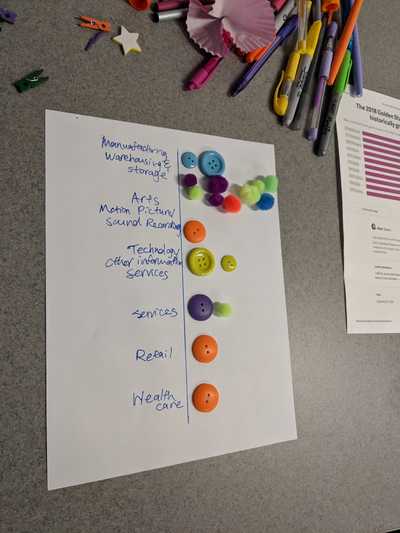 Manufacturing
Warehousing &
storage
Arts
Motion Picture/
Sound Recording
Technology
other information
services
services
Retail
Health
care
The 2018 Golden Sta
historically g